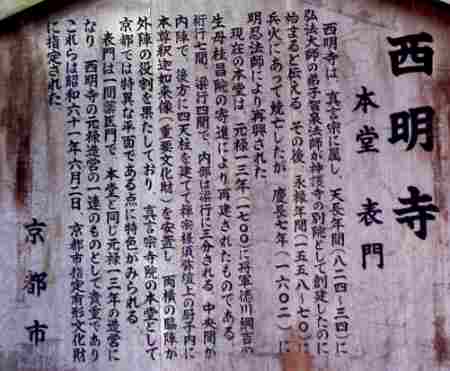 西明寺
本堂 表門
西明寺は、真言宗に属し、天長年間(八二四～三四)に
弘法大師の弟子智泉法師が神護寺の別院として創建したのに
始まると伝える。その後、永禄年間(一五五八～七〇)に
兵火にあって焼亡したが、慶長七年(一六〇二)に
明忍法師により再興された。
現在の本堂は、元禄一三年(一七〇〇)に将軍徳川綱吉の
生母桂昌院の寄進により再建されたものである。
桁行七間、梁行四間で、内部は梁行に三分される。中央間が
内陣で、後方に四天柱を建てて禅宗様須弥壇上の厨子内に
本尊釈迦如来像(重要文化財)を安置し、両横の脇陣が
外陣の役割を果たしており、真言宗寺院の本堂として
京都では特異な平面である点に特色がみられる。
表門は一間薬医門で、本堂と同じ元禄一三年の造営に
なり、西明寺の元禄造営の一連のものとして貴重であり
これらは昭和六十一年六月二日、京都市指定有形文化財
に指定された。
京都市